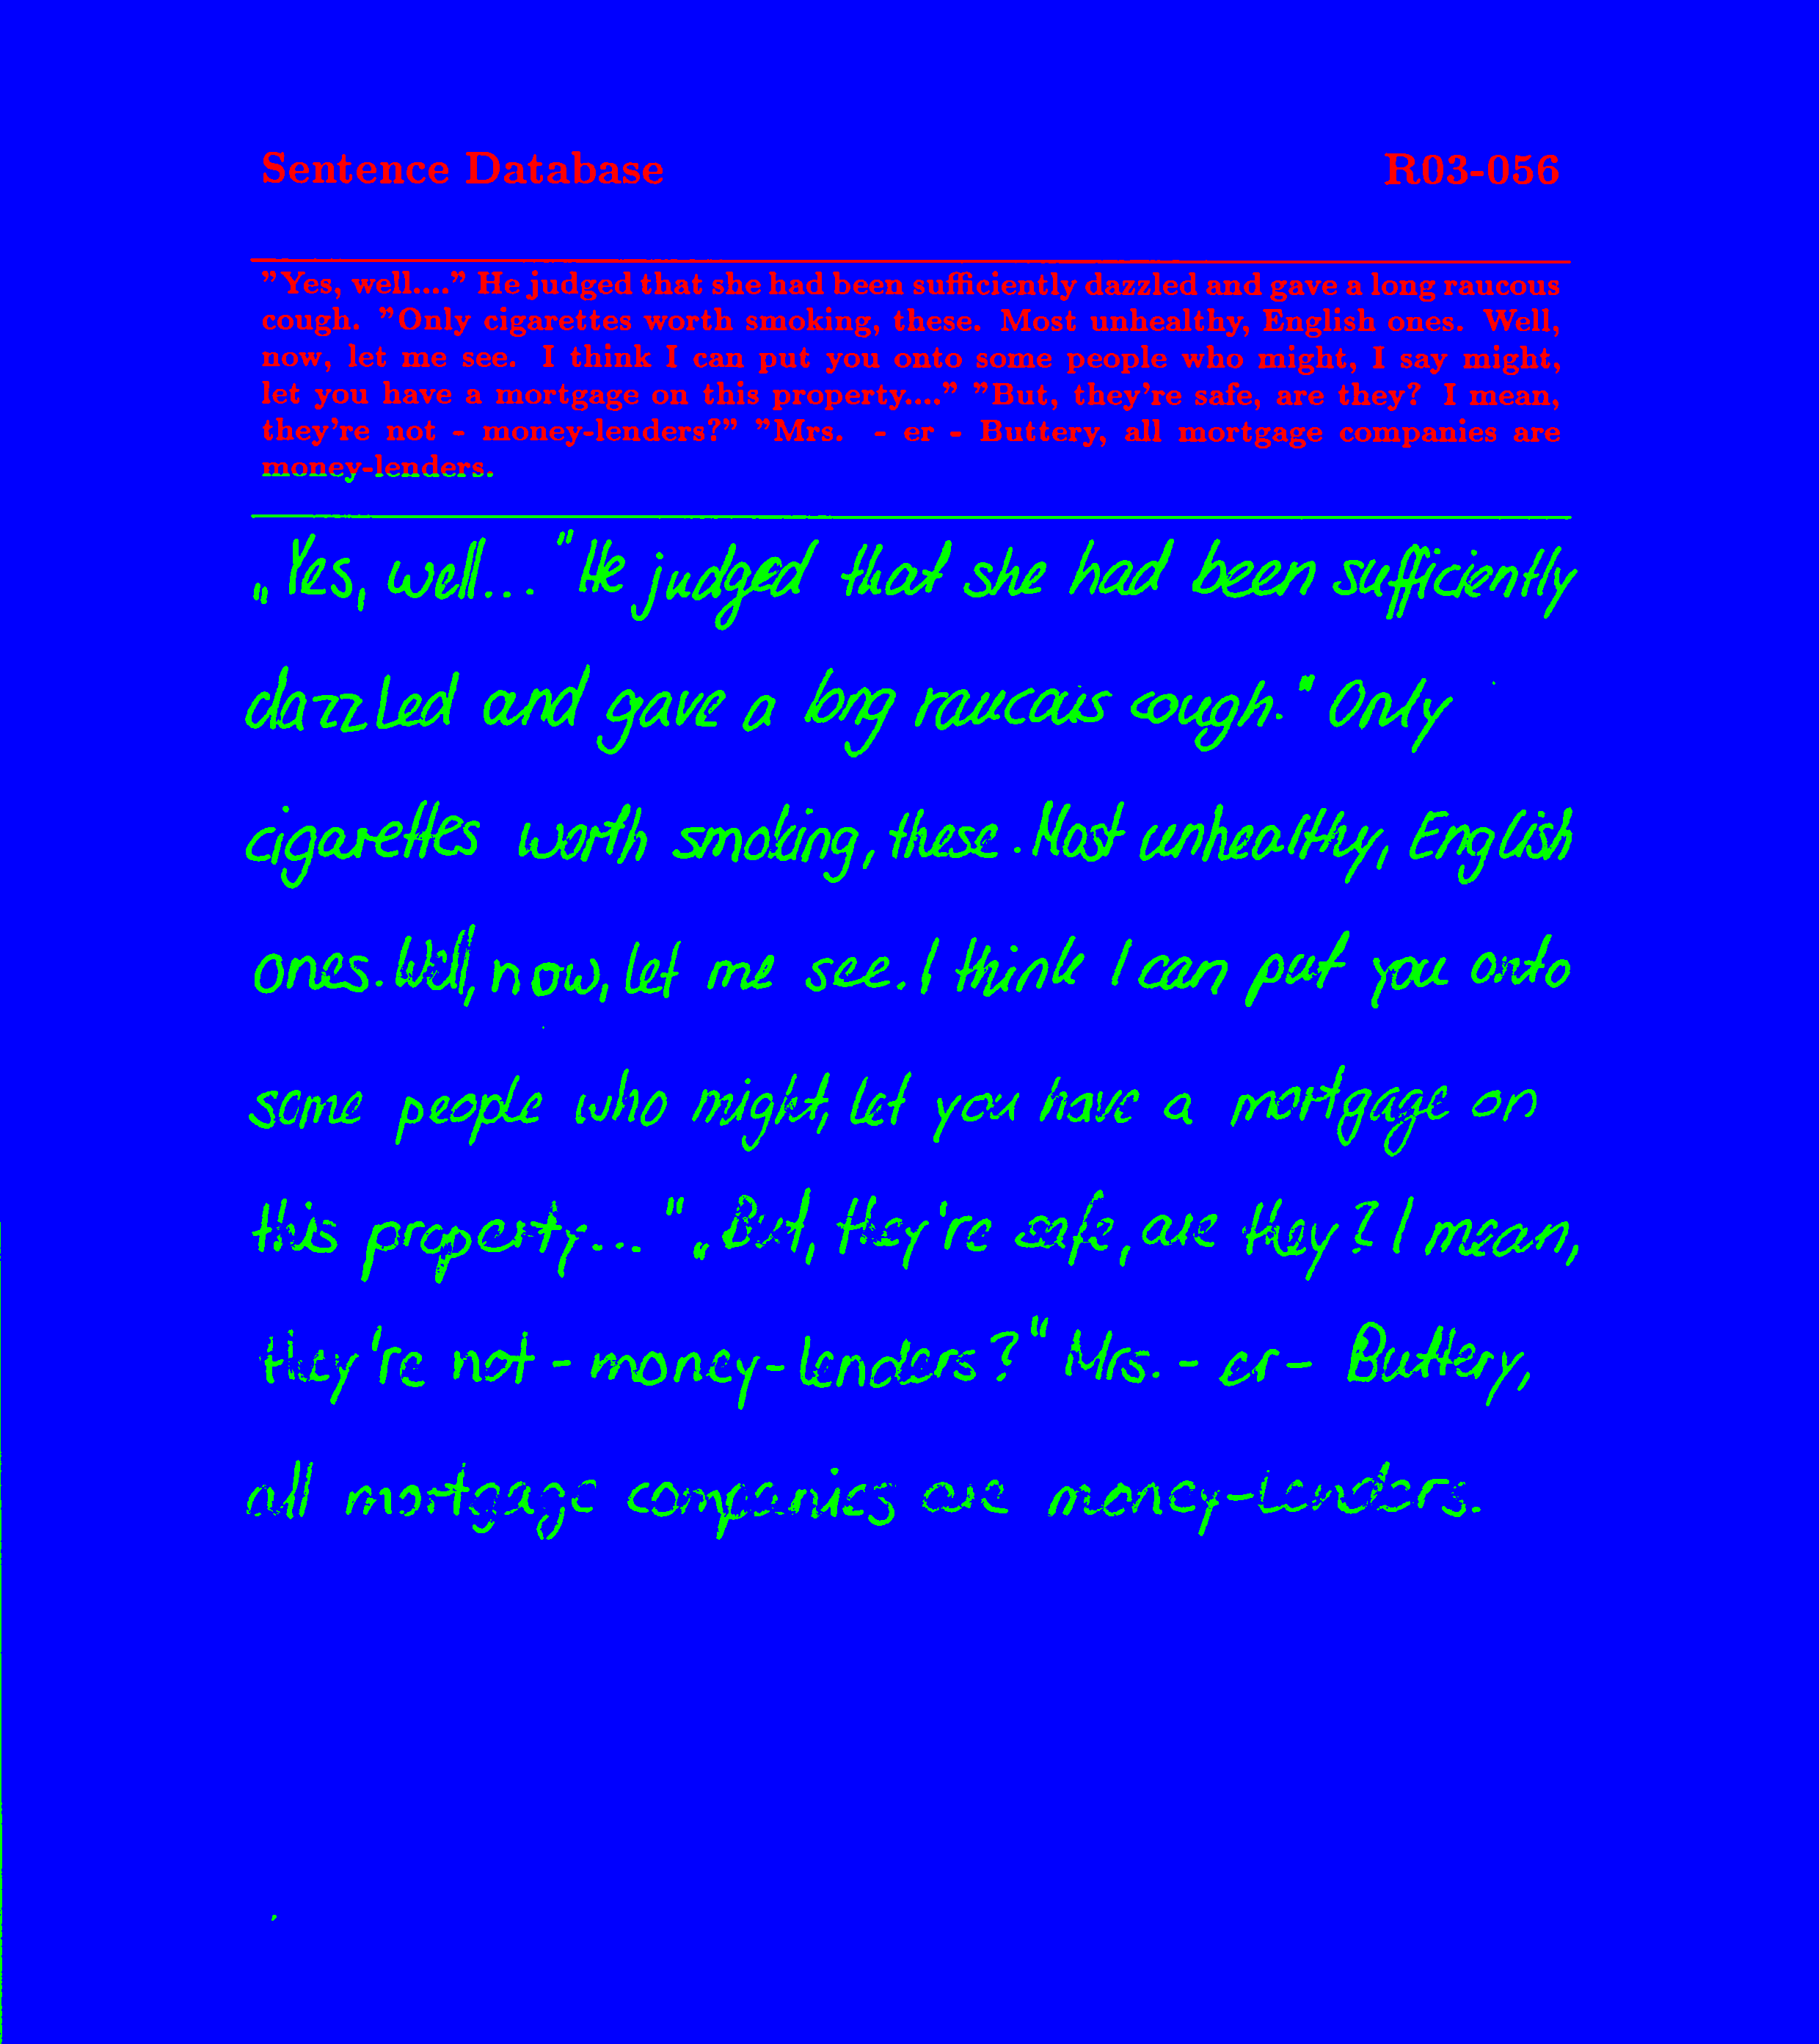 Sentence Database R03-056
"Yes, well...." He judged that she had been sufficiently dazzled and gave a long raucous
cough. "Only cigarettes worth smoking, these. Most unhealthy, English ones. Well,
now, let me see. I think I can put you onto some people who might, I say might,
let you have a mortgage on this property...." "But, they're safe, are they? I mean,
they're not - money-lenders?" "Mrs. - er - Buttery, all mortgage companies are
money-lenders.
„Yes, well..." He judged that she had been sufficiently
dazzled and gave a long raucous cough." Only
cigarettes worth smoking, these. Most unhealthy, English
ones. Well, now, let me see. I think I can put you onto
some people who might, let you have a mortgage on
this property..." „But, they're safe, are they? I mean,
they're not - money-lenders?" Mrs. - er - Buttery,
all mortgage companies are money-lenders.